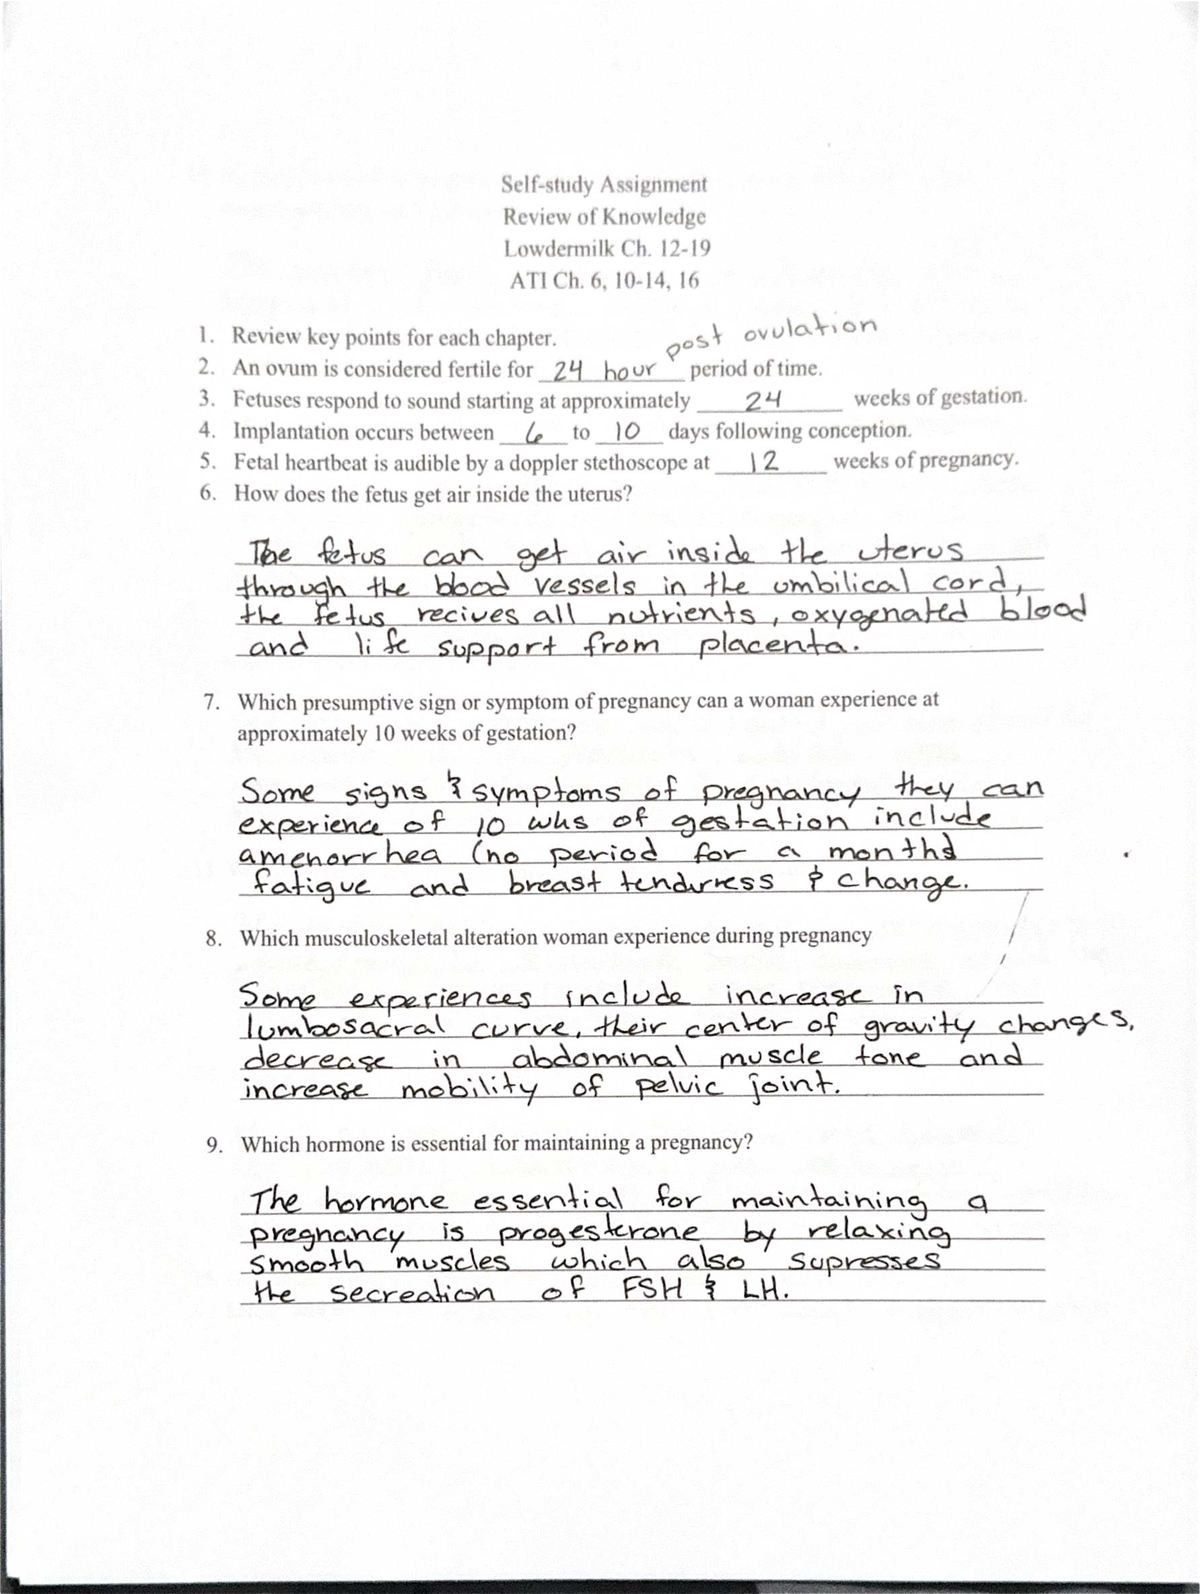 Self-study Assignment
Review of Knowledge
Lowdermilk Ch. 12-19
ATI Ch. 6, 10-14, 16
1. Review key points for each chapter.
post ovulation
2. An ovum is considered fertile for 24 hour period of time.
3. Fetuses respond to sound starting at approximately 24 weeks of gestation.
4. Implantation occurs between 6 to 10 days following conception.
5. Fetal heartbeat is audible by a doppler stethoscope at 12 weeks of pregnancy.
6. How does the fetus get air inside the uterus?
The fetus can get air inside the uterus
through the blood vessels in the umbilical cord,
the fetus recives all nutrients, oxygenated blood
and life support from placenta.
7. Which presumptive sign or symptom of pregnancy can a woman experience at
approximately 10 weeks of gestation?
Some signs & symptoms of pregnancy they can
experience of 10 wks of gestation include
amenorrhea (no period for a months)
fatigue and breast tenderness & change.
8. Which musculoskeletal alteration woman experience during pregnancy
Some experiences include increase in
lumbosacral curve, their center of gravity changes,
decrease in abdominal muscle tone and
increase mobility of pelvic joint.
9. Which hormone is essential for maintaining a pregnancy?
The hormone essential for maintaining a
pregnancy is progesterone by relaxing
smooth muscles which also supresses
the secreation of FSH & LH.